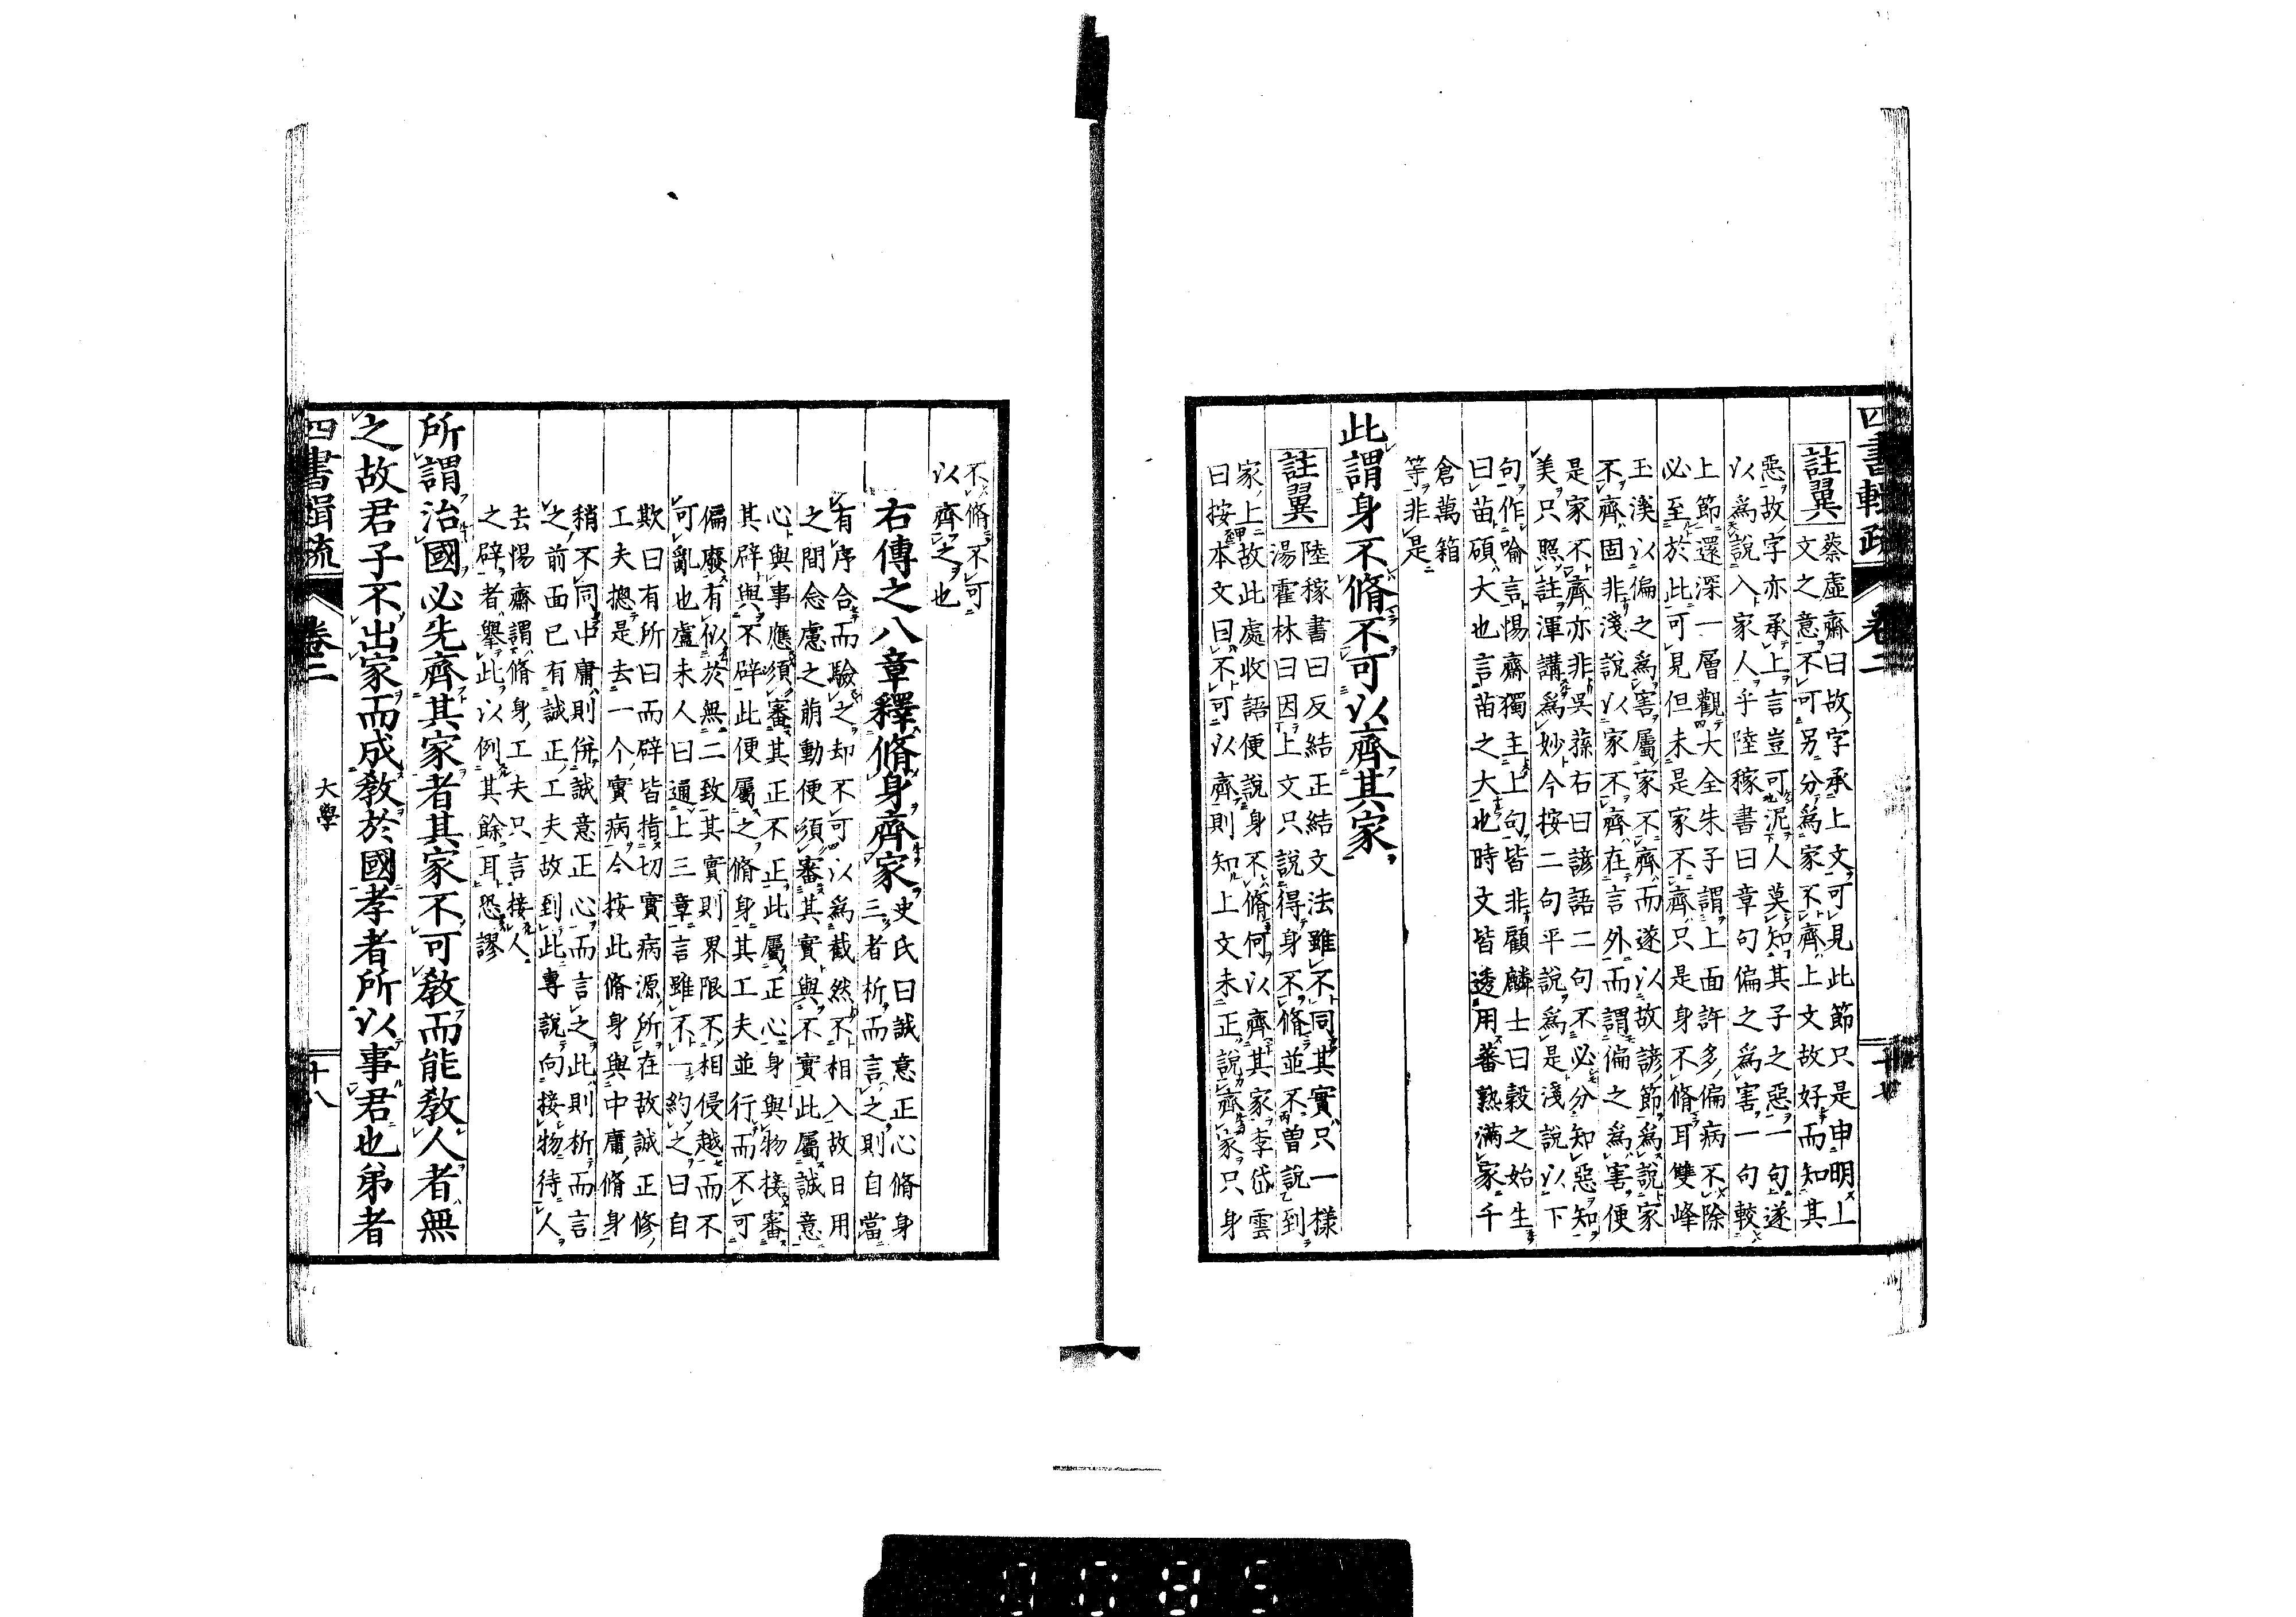 四書輯疏 卷二
註翼 蔡虛齋曰故字承上文可見此節只是申明上
文之意不可另分爲家不齊上文故好而知其
惡故字亦承上言豈可泥人莫知其子之惡一句遂
以爲說入家人乎陸稼書曰章句偏之爲害一句較
上節還深一層觀大全朱子謂上面許多偏病不除
必至於此可見但未是家不齊只是身不脩耳雙峰
玉溪以偏之爲害屬家不齊而遂以故諺節爲說家
不齊固非淺說以家不齊在言外而謂偏之爲害便
是家不齊亦非吳蓀右曰諺語二句不必分知惡知
美只照註渾講爲妙今按二句平說爲是淺說以下
句作喻言惕齋獨主上句皆非顧麟士曰穀之始生
曰苗碩大也言苗之大也時文皆透用蕃熟滿家千
倉萬箱
等非是
此謂身不脩不可以齊其家
註翼 陸稼書曰反結正結文法雖不同其實只一樣
湯霍林曰因上文只說得身不脩並不曾說到
家上故此處收語便說身不脩何以齊其家李岱雲
曰按本文曰不可以齊則知上文未正說齊家只身
不脩不可
以齊之也
右傳之八章釋脩身齊家
史氏曰誠意正心脩身
三者析而言之則自當
有序合而驗之却不可以爲截然不相入故日用
之間念慮之萠動便須審其實與不實此屬誠意
心與事應須審其正不正此屬正心身與物接審
其辟與不辟此便屬之脩身其工夫並行而不可
偏廢有似於無二致其實則界限不相侵越而不
可亂也盧未人曰通上三章言雖不一約之曰自
欺曰有所曰而辟皆指切實病源所在故誠正修
工夫摠是去一个實病今按此脩身與中庸脩身
稍不同中庸則併誠意正心而言之此則析而言
之前面已有誠正工夫故到此專說向接物待人
去惕齋謂脩身工夫只言接人
之辟者舉此以例其餘耳恐謬
所謂治國必先齊其家者其家不可敎而能敎人者無
之故君子不出家而成敎於國孝者所以事君也弟者
四書輯疏 卷二 大學 十八